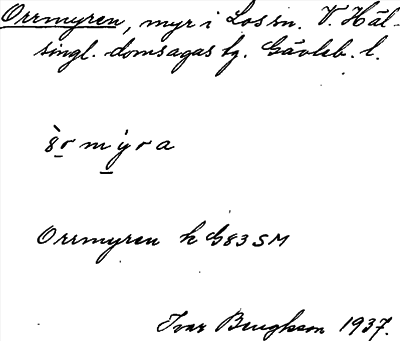 Orrmyren, myr i Los sn. V. Häl-
singl. domsagas tg. Gävleb. l.
Orrmyren k G83SM
Ivar Bengtsson 1937.